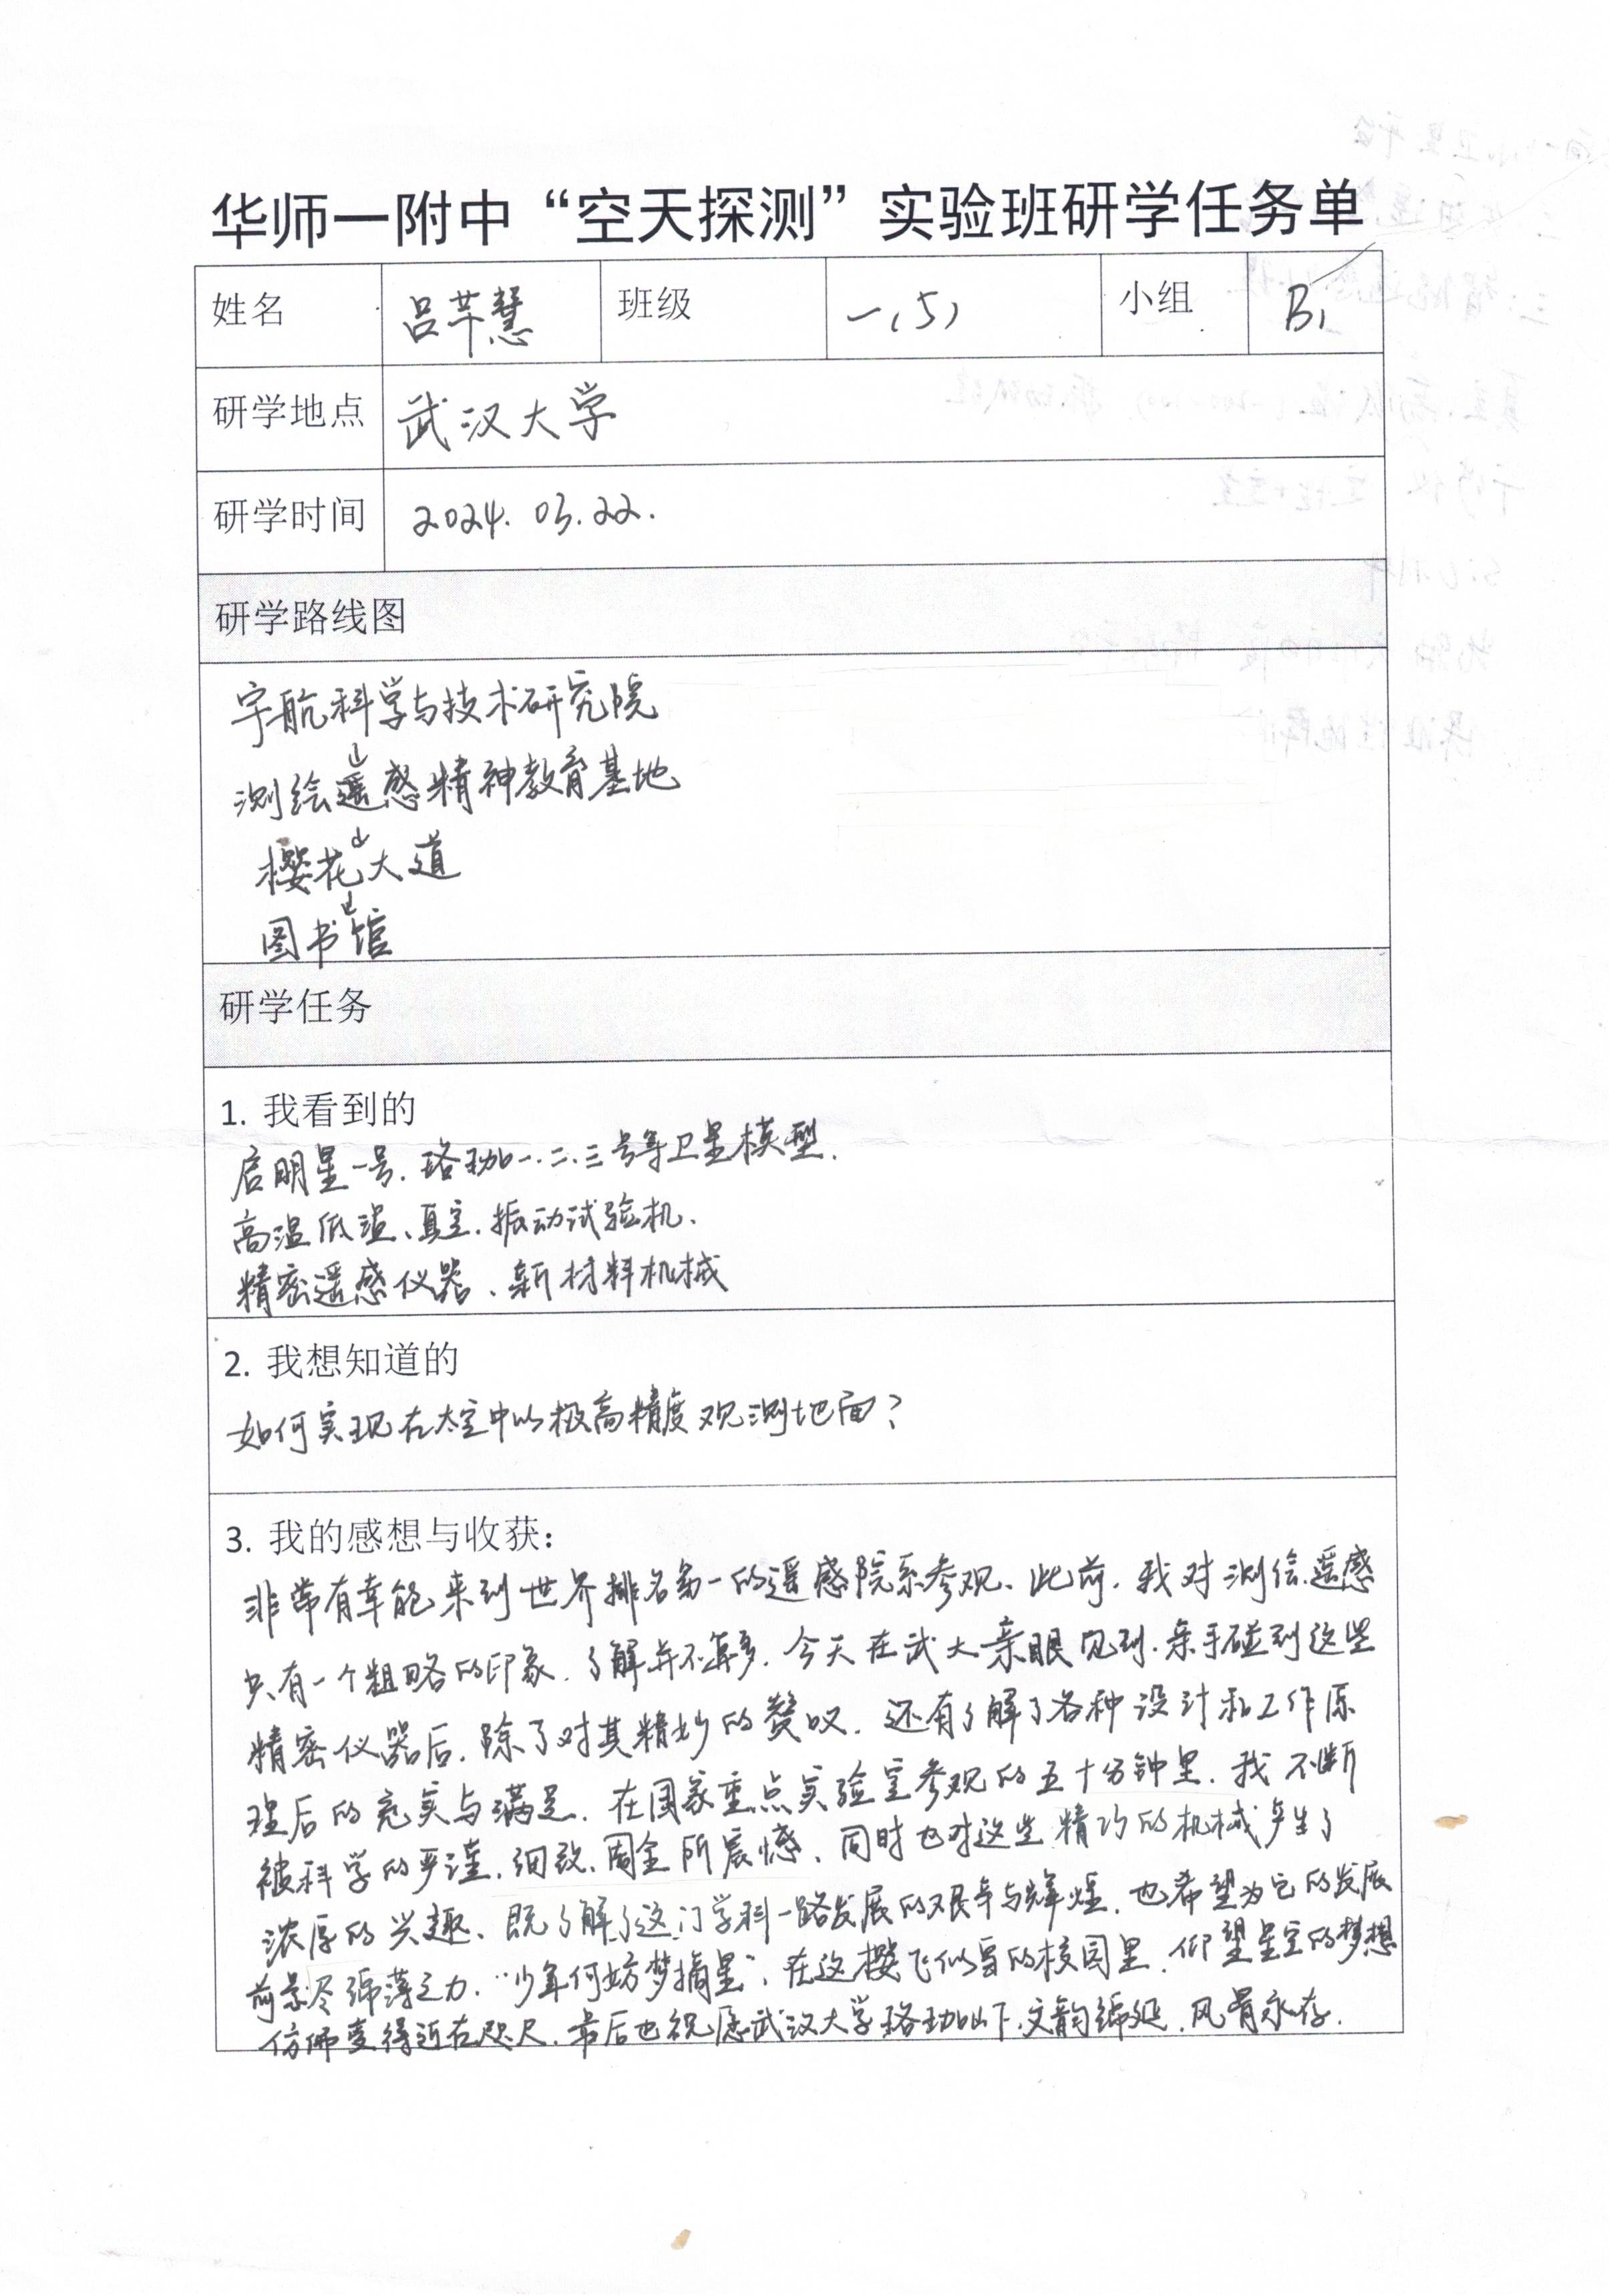 华师一附中“空天探测”实验班研学任务单
姓名 吕芊慧 班级 一(5) 小组 B1
研学地点 武汉大学
研学时间 2024.03.22.
研学路线图
宇航科学与技术研究院
↓
测绘遥感精神教育基地
↓
樱花大道
↓
图书馆
研学任务
1. 我看到的
启明星一号、珞珈一、二、三号等卫星模型.
高温低温、真空、振动试验机、
精密遥感仪器、新材料机械
2. 我想知道的
如何实现在太空中以极高精度观测地面?
3. 我的感想与收获：
非常有幸能来到世界排名第一的遥感院系参观、此前，我对测绘遥感
只有一个粗略的印象，了解并不算多，今天在武大亲眼见到、亲手碰到这些
精密仪器后，除了对其精妙的赞叹，还有了解了各种设计和工作原
理后的充实与满足。在国家重点实验室参观的五十分钟里，我不断
被科学的严谨、细致、周全所震撼、同时也对这些精巧的机械产生了
浓厚的兴趣、既了解了这门学科一路发展的艰辛与辉煌，也希望为它的发展
前景尽绵薄之力.“少年何妨梦摘星”，在这樱飞似雪的校园里，仰望星空的梦想
仿佛变得近在咫尺、最后也祝愿武汉大学珞珈山下，文韵绵延，风骨永存.